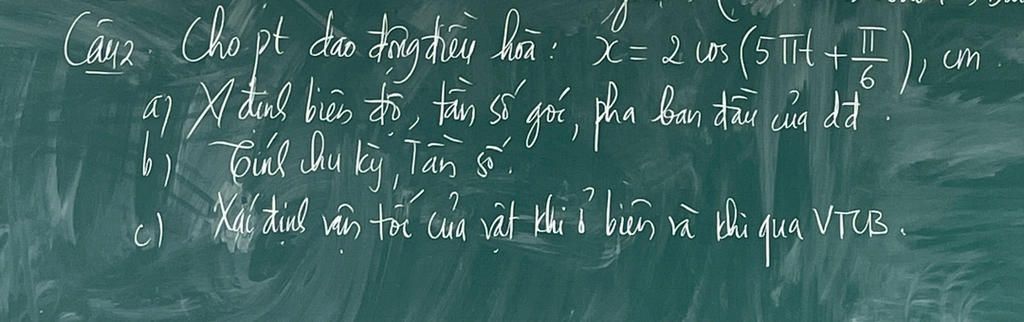 Câu2. Cho pt dao động điều hoà: x = 2 cos (5πt + π/6), cm.
a) X định biên độ, tần số góc, pha ban đầu của dđ.
b) Tính chu kỳ, Tần số.
c) Xác định vận tốc của vật khi ở biên và khi qua VTCB.